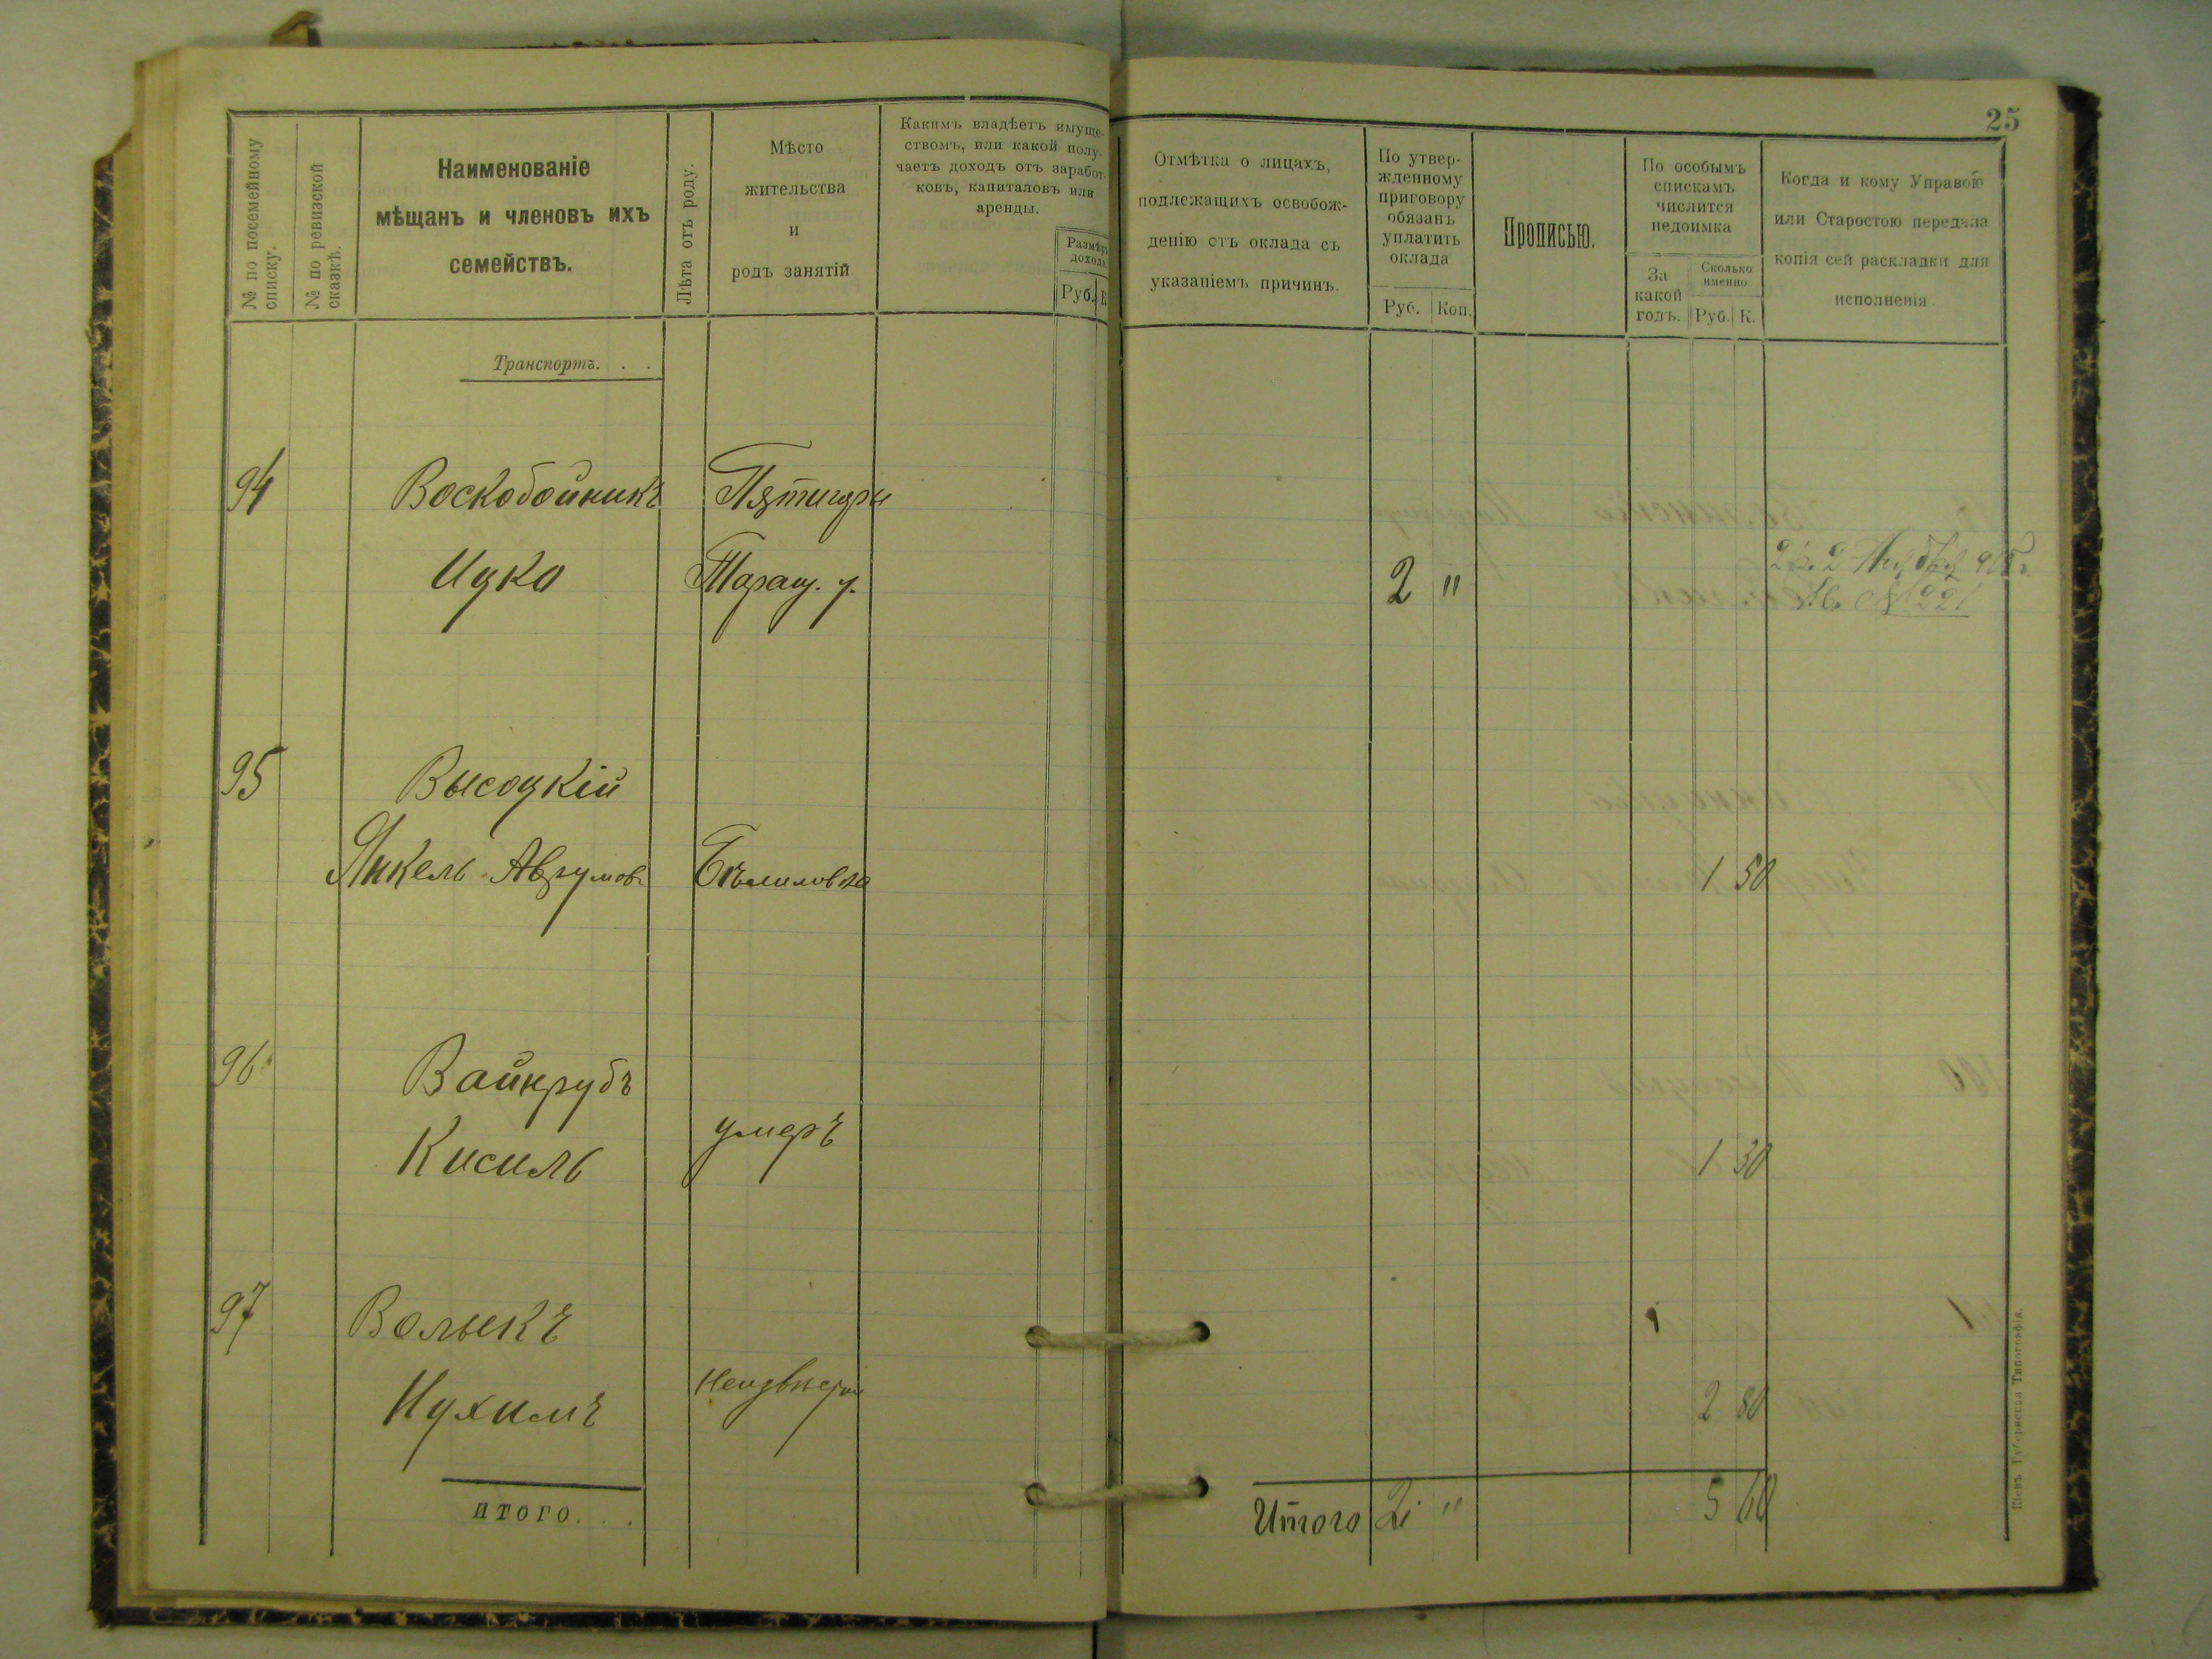 25
№ по посемейному
списку.
№ по ревизской
сказкѣ.
Наименованіе
мѣщанъ и членовъ ихъ
семействъ.
Лѣта отъ роду.
Мѣсто
жительства
и
родъ занятій
Какимъ владѣетъ имуще-
ствомъ, или какой полу-
чаетъ доходъ отъ заработ-
ковъ, капиталовъ или
аренды.
Размѣръ
дохода
Руб. К
Отмѣтка о лицахъ,
подлежащихъ освобож-
денію отъ оклада съ
указаніемъ причинъ.
По утвер-
жденному
приговору
обязанъ
уплатить
оклада
Руб. Коп.
Прописью.
По особымъ
спискамъ
числится
недоимка
За
какой
годъ.
Сколько
именно
Руб. К.
Когда и кому Управою
или Старостою передана
копія сей раскладки для
исполненія
Транспортъ. . .
94 Воскобойникъ Пятигоры
Ицко Таращ. у. 2 "
№ 221
95 Высоцкій
Янкель Аврумовъ 1 50
96 Вайнрубъ
Кисиль умеръ 1 30
97 Волыкъ
Нухимъ 2 80
ИТОГО. . .
Итого 2 " 5 60
Кіевъ Губернская Типографія.